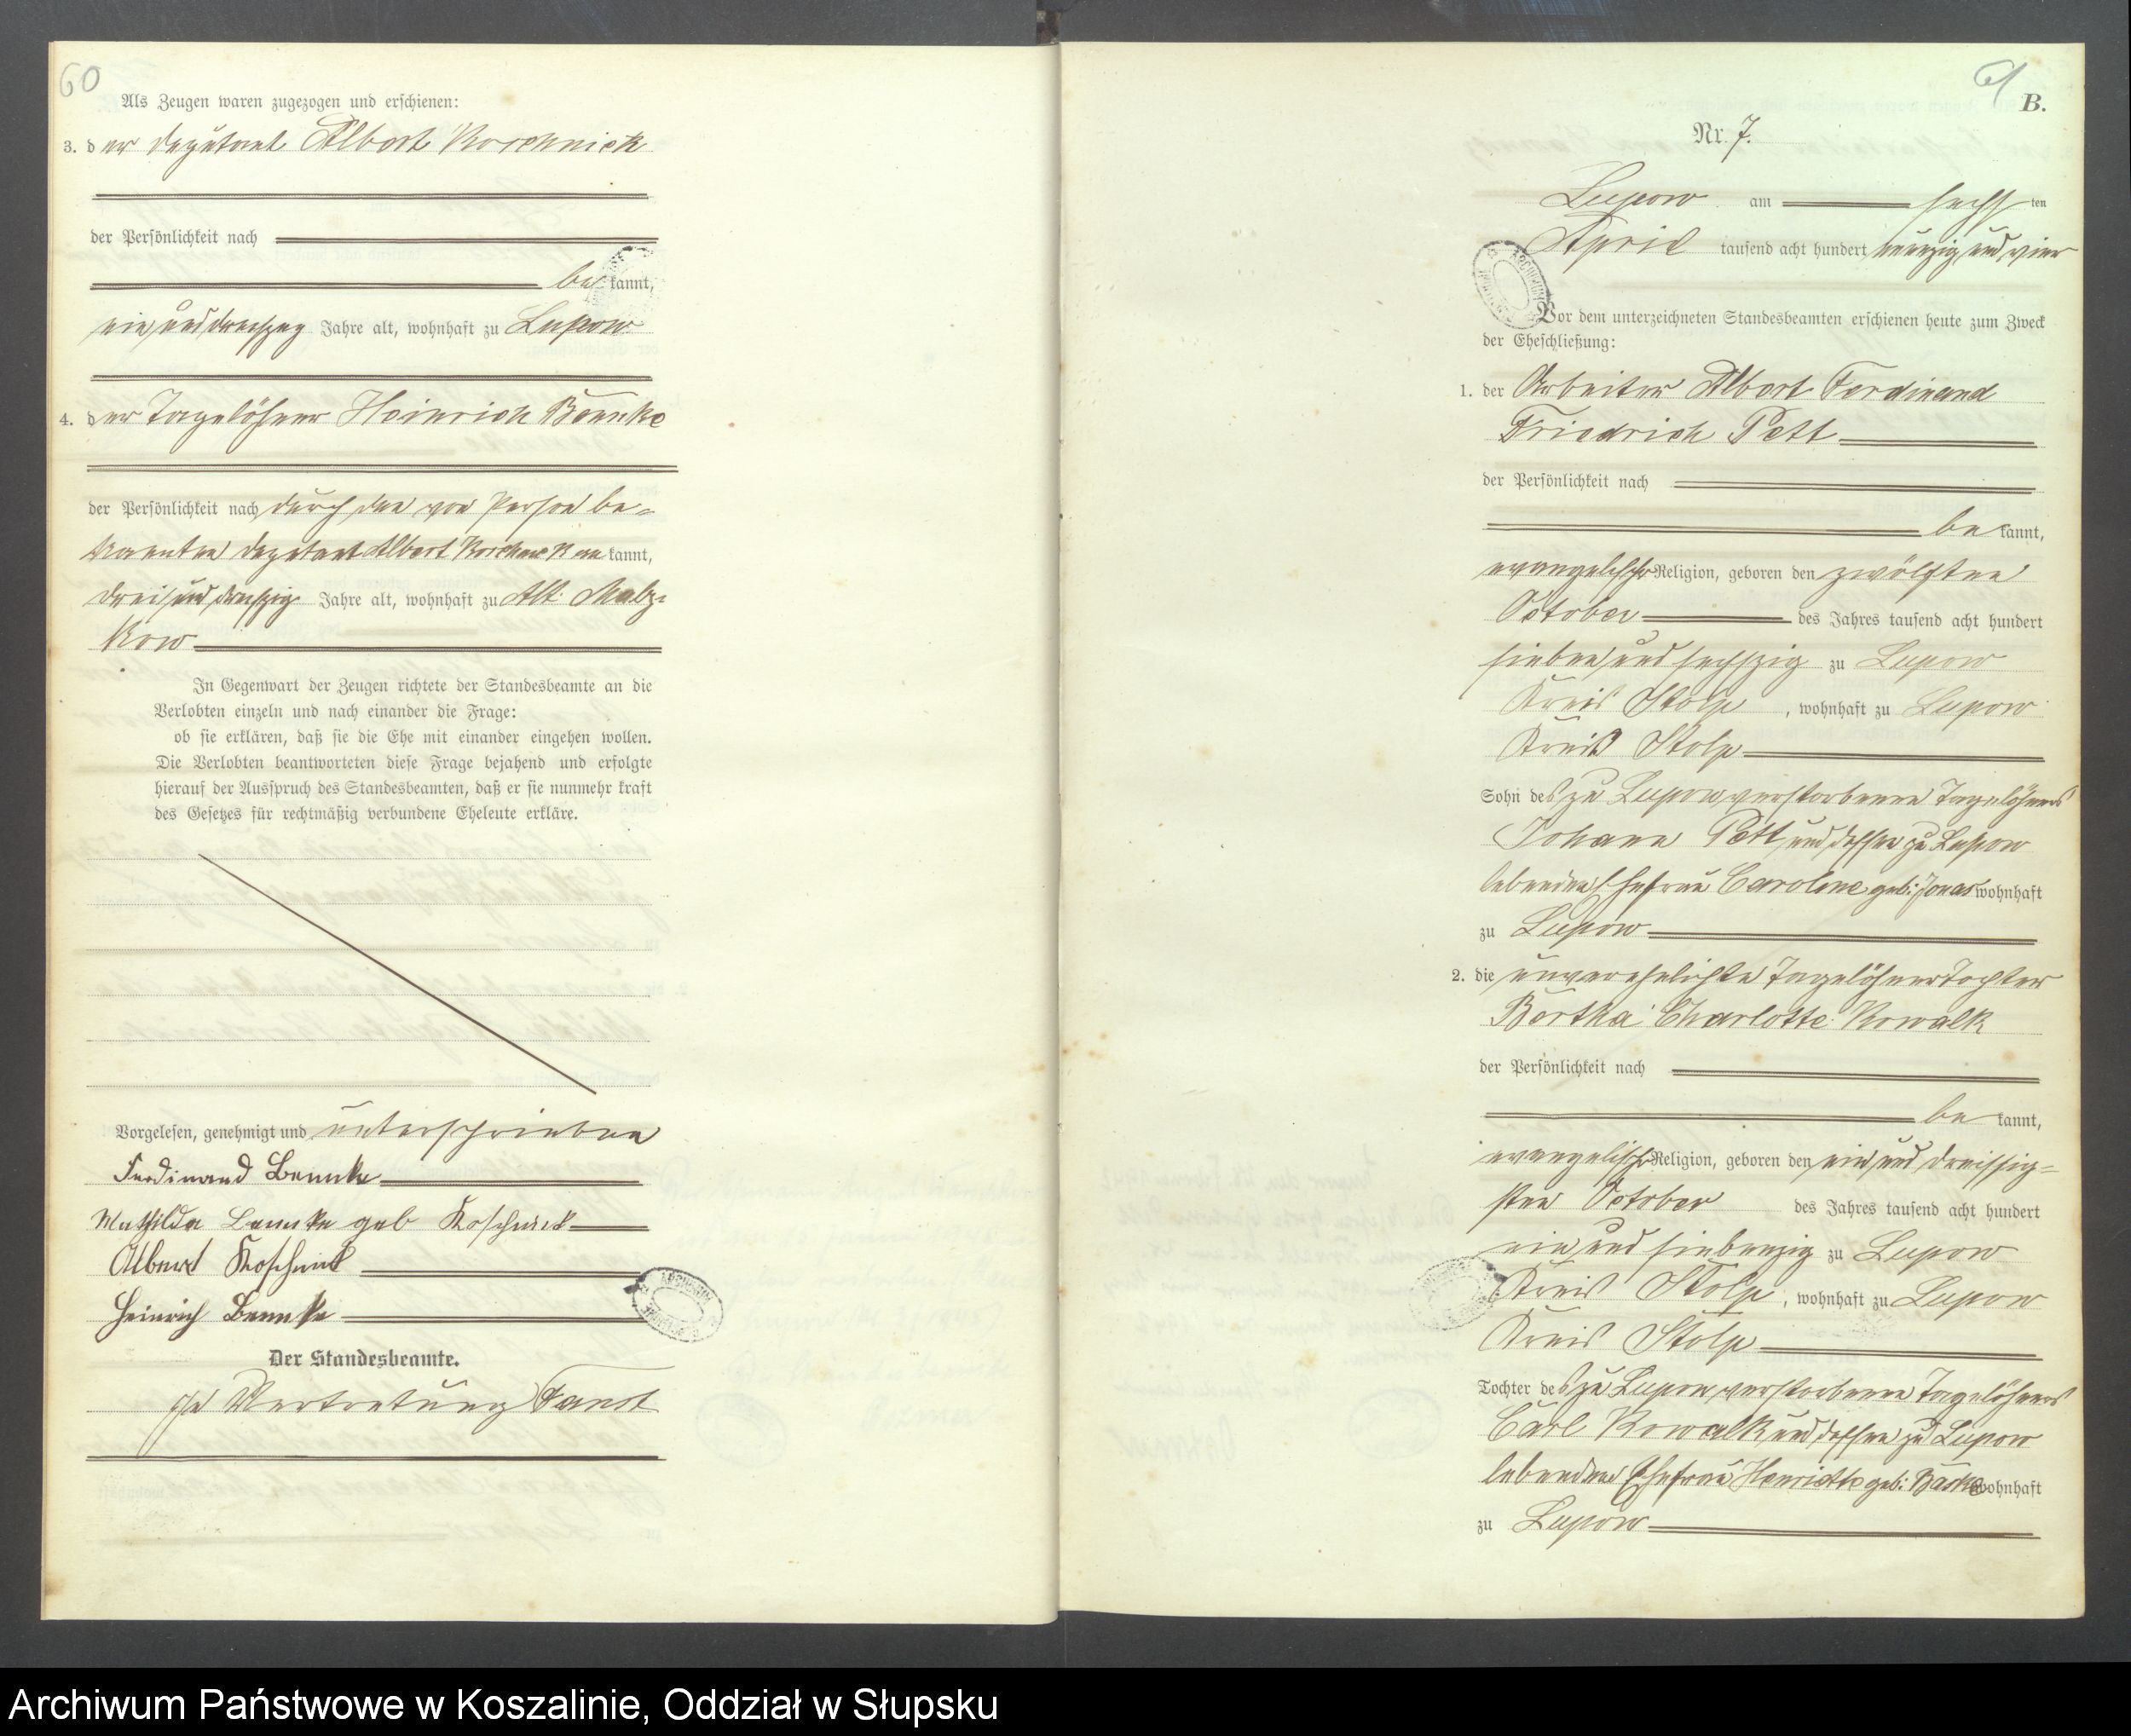 60
Als Zeugen waren zugezogen und erschienen:
3. der Deputant Albert Koschnick
der Persönlichkeit nach
bekannt,
ein und dreißig Jahre alt, wohnhaft zu Lupow
4. der Tagelöhner Heinrich Bennke
der Persönlichkeit nach durch den von Person be=
kannten Deputant Albert Koschnick an kannt,
drei und dreißig Jahre alt, wohnhaft zu Alt Malz=
kow
In Gegenwart der Zeugen richtete der Standesbeamte an die
Verlobten einzeln und nach einander die Frage:
ob sie erklären, daß sie die Ehe mit einander eingehen wollen.
Die Verlobten beantworteten diese Frage bejahend und erfolgte
hierauf der Ausspruch des Standesbeamten, daß er sie nunmehr kraft
des Gesetzes für rechtmäßig verbundene Eheleute erkläre.
Vorgelesen, genehmigt und unterschrieben
Ferdinand Bennke
Mathilde Bennke geb Koschnick
Albert Koschnick
Heinrich Bennke
Der Standesbeamte.
In Vertretung
61
B.
Nr. 7.
Lupow am sechsten
April tausend acht hundert neunzig und vier
Vor dem unterzeichneten Standesbeamten erschienen heute zum Zweck
der Eheschließung:
1. der Arbeiter Albert Ferdinand
Friedrich Pett
der Persönlichkeit nach
bekannt,
evangelischer Religion, geboren den zwölften
October des Jahres tausend acht hundert
sieben und sechszig zu Lupow
Kreis Stolp, wohnhaft zu Lupow
Kreis Stolp
Sohn des zu Lupow verstorbenen Tagelöhners
Johann Pett und dessen zu Lupow
lebenden Ehefrau Caroline geb: Jonas wohnhaft
zu Lupow
2. die unverehelichte Tagelöhnertochter
Bertha Charlotte Kowalk
der Persönlichkeit nach
bekannt,
evangelischer Religion, geboren den ein und dreissig=
sten October des Jahres tausend acht hundert
ein und siebenzig zu Lupow
Kreis Stolp, wohnhaft zu Lupow
Kreis Stolp
Tochter des zu Lupow verstorbenen Tagelöhners
Carl Kowalk und dessen zu Lupow
lebenden Ehefrau Henriette geb: wohnhaft
zu Lupow
Archiwum Państwowe w Koszalinie, Oddział w Słupsku